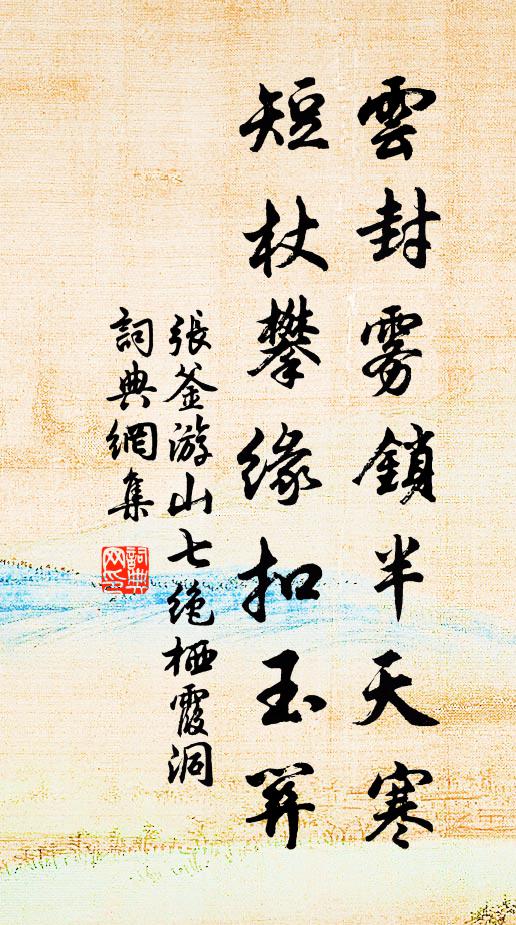 雲封雾鎖半天寒
短杖攀缘扣玉關
張釜游山七绝栖霞洞
詞典網集
詞典
网印